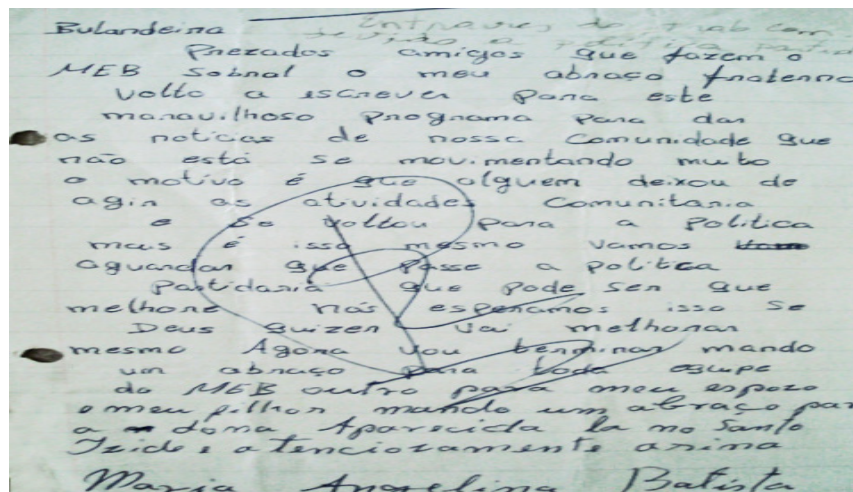 Entraves do trab com
Bulandeira
Prezados amigos que fazem o
MEB Sobral o meu abraço fraterno
volto a escrever para este
maravilhoso programa para dar
as noticias de nossa Comunidade que
não está se movimentando muito
o motivo é que alguem deixou de
agir as atividades Comunitaria
e se voltou para a politica
mais é isso mesmo vamos
aguardar que passe a politica
Partidaria que pode ser que
melhore nós esperamos isso se
Deus quizer vai melhorar
mesmo Agora vou terminar mando
um abraço para toda equipe
do MEB outro para meu espozo
e meu filhos mando um abraço par
a dona Aparecida la no Santo
Izide e atenciozamente asina
Maria Angelina Batista